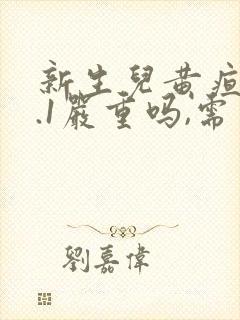 新生兒黄疸
.1嚴重吗,需
劉嘉偉